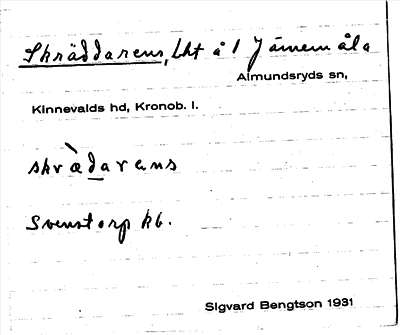 Skräddarens, Lht å 1 Jämnemåla
Almundsryds sn,
Kinnevalds hd, Kronob. l.
skræ̀darens
Svenstorp kb.
Sigvard Bengtson 1931